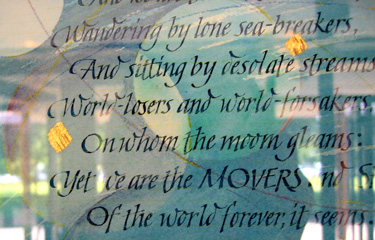 And
Wandering by lone sea-breakers,
And sitting by desolate streams
World-losers and world-forsakers,
On whom the moon gleams:
Yet we are the MOVERS and S
Of the world forever, it seems.